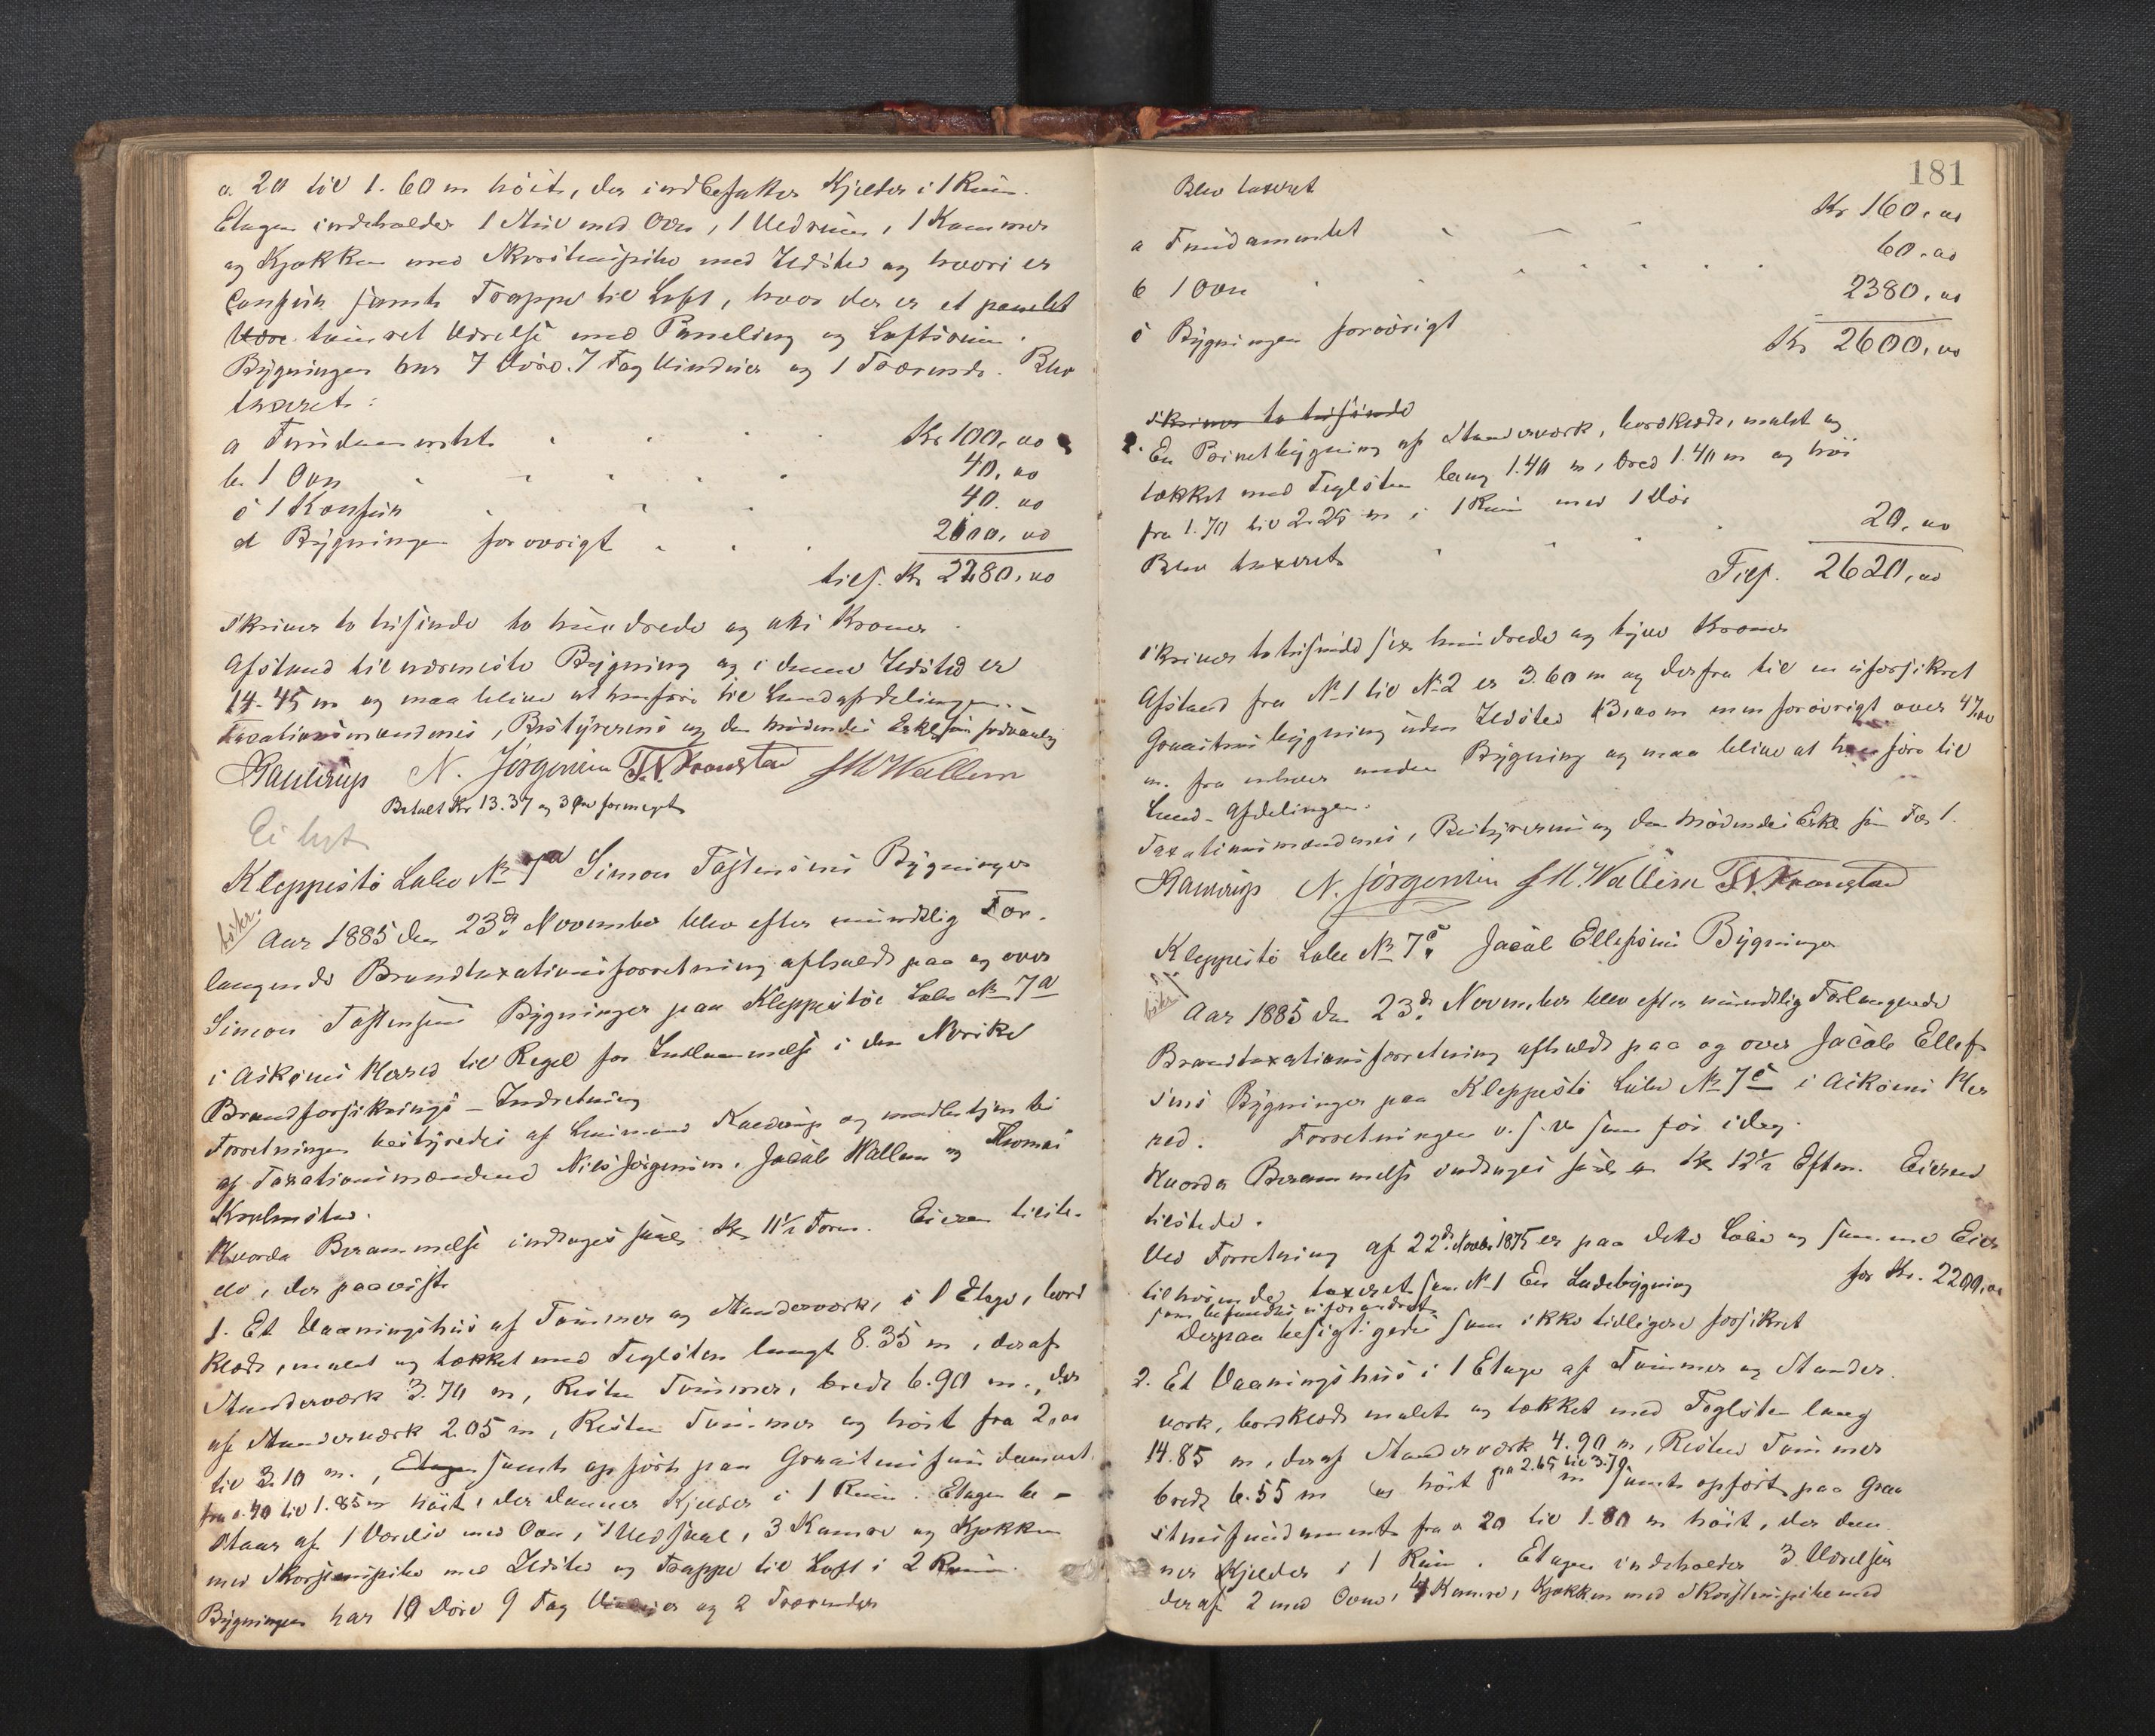 o. 20 til 1.60 m höit, der indbefatter Kjelder i 1 Rum.
Etagen indeholder 1 Stue med Ovn, 1 Vedrum, 1 Kammer
og Kjøkken med Skorstenspibe med Ildsted og hvori er
Comfur samt Trappe til Loft, hvor der er et panelet
Være tømret Værelse med Paneling og Loftsrum.
Bygningen har 7 Döre. 7 Fag Vinduer og 1 Tværende. Blev
taxeret:
a Fundamentet Kr 100,00
b. 1 Ovn 40,00
c 1 Komfur 40.00
d Bygningen forøvrigt 2100,00
tils. Kr 2280,00
skriver to tusinde to hundrede og otti Kroner.
Afstand til nærmeste Bygning og i denne Ildsted er
14.45 m og maa blive at henføre til Landafdelingen.
Taxationsmændenes, Bestyrerens og den mödendes Erkl. som sedvanlig
Kaurup N. Jørgensen T. N. Kronstad J M Wallem
Betalt Kr 13.37 og 3 Øre formeget
Ei lyst
Kleppestö Løbe No 7a Simon Tostensens Bygninger
bókr.
Aar 1885 den 23de November blev efter mundtlig For-
langende Brandtaxationsforretning afholdt paa og over
Simon Tostensens Bygninger paa Kleppestöe Løbe No 7a
i Askøens Herred til Regel for Indlemmelse i den Norske
Brandforsikrings-Indretning
Forretningen bestyredes af Lensmand Kaurup og medbetjentes
af Taxationsmændene Nils Jørgensen, Jacob Wallem og Thomas
Hvorda Berammelse indtoges sad Kl. 11½ Form. Eieren tilste-
de, der paaviste
1. Et Vaaningshus af Tømmer og Standerværk, i 1 Etage, bord
klædt, malet og tækket med Teglsten langt 8.35 m, deraf
Standerværk 3.70 m, Resten Tømmer, bredt 6.90 m., der
af Standerværk 2.05 m, Resten Tømmer og höit fra 2,00
til 3.10 m., Etagen samt opfört paa Graastensfundament
fra 0.40 til 1.85 m höit, der danner Kjelder i 1 Rum. Etagen be-
staar af 1 Værelse med Ovn, 1 Vedskuel, 3 Kamre og Kjøkken
med Skorstenspibe med Ildsted og Trappe til Loft i 2 Rum.
Bygningen har 10 Döre 9 Fag Vinduer og 2 Tværender
181
Blev taxeret
a Fundamentet Kr 160,00
b 1 Ovn 60,00
c Bygningen forøvrigt 2380,00
Kr 2600,00
skriver to tusinde
2. En Privetbygning af Standerværk, bordklædt, malet og
tækket med Teglsten lang 1.40 m, bred 1.40 m og höi
fra 1.70 til 2.25 m i 1 Rum med 1 Dör
Blev taxeret 20,00
Tils. 2620,00
skriver to tusinde sex hundrede og tyve Kroner
Afstand fra No 1 til No 2 er 3.60 m og derfra til en uforsikret
Graastensbygning uden Ildsted 13,00 m men forøvrigt over 47,00
m. fra enhver anden Bygning og maa blive at henföre til
Land-Afdelingen.
Taxationsmændenes, Bestyrerens og den mødendes Erkl. som For 1.
Kaurup N. Jørgensen J M. Wallem T. N. Kronstad
Kleppestö Løbe No 7c Jacob Ellefsens Bygninger
bókr.
Aar 1885 den 23de November blev efter mundtlig Forlangende
Brandtaxationsforretning afholdt paa og over Jacob Ellef-
sens Bygninger paa Kleppestö Løbe No 7c i Askøens Her
red. Forretningen o. s. v. som for idag.
Hvorda Berammelse indtoges sad Kl. 12½ Efterm. Eieren
tilstede.
Ved Forretning af 22de Novbr 1875 er paa dette Løbe og samme Eier
tilhörende taxeret som No 1 En Ladebygning for Kr. 2200,00
som befandtes uforandret.
Derpaa besigtigedes som ikke tidligere forsikret
2. Et Vaaningshus i 1 Etage af Tømmer og Stander-
værk, bordklædt malet og tækket med Teglsten lang
14.85 m, deraf Standerværk 4.90 m, Resten Tømmer
bredt 6.55 m og höit fra 2.65 til 3.70 m samt opfört paa Graa
stensfundament fra 0.20 til 1.80 m höit, der dan-
ner Kjelder i 1 Rum. Etagen indeholder 3 Værelser
deraf 2 med Ovne, 4 Kamre, Kjøkken med Skorstenspibe med